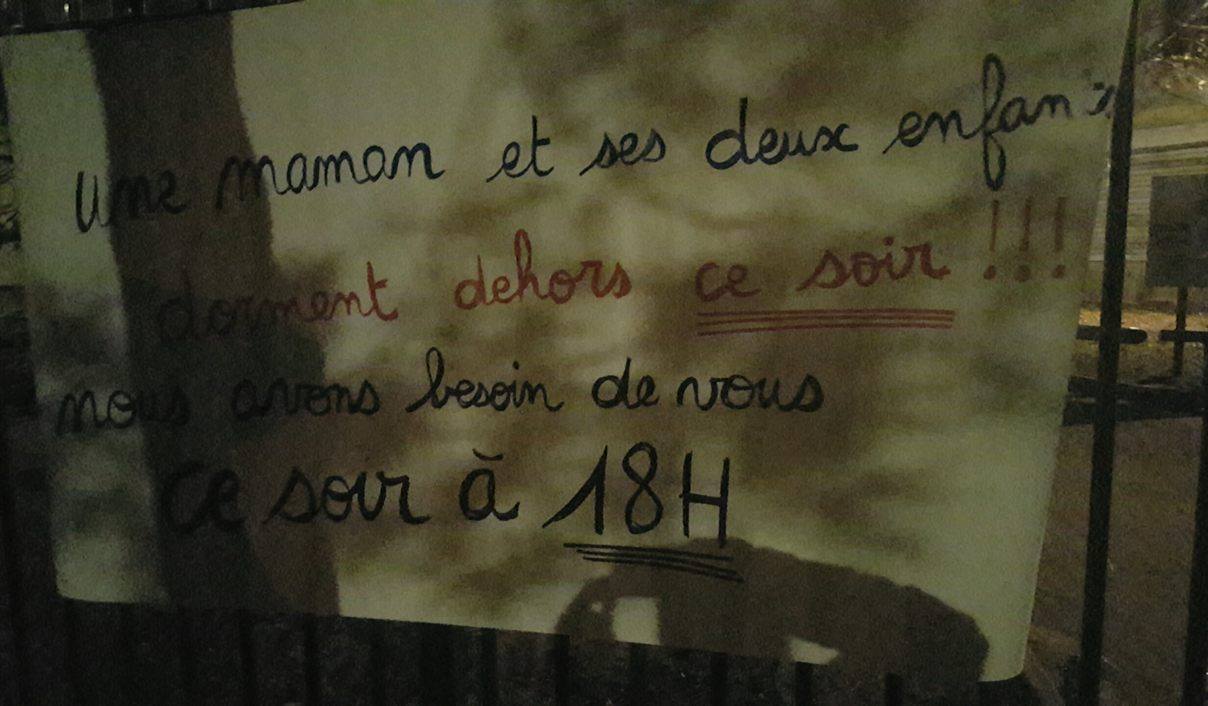 une maman et ses deux enfants
dorment dehors ce soir !!!
nous avons besoin de vous
ce soir à 18H